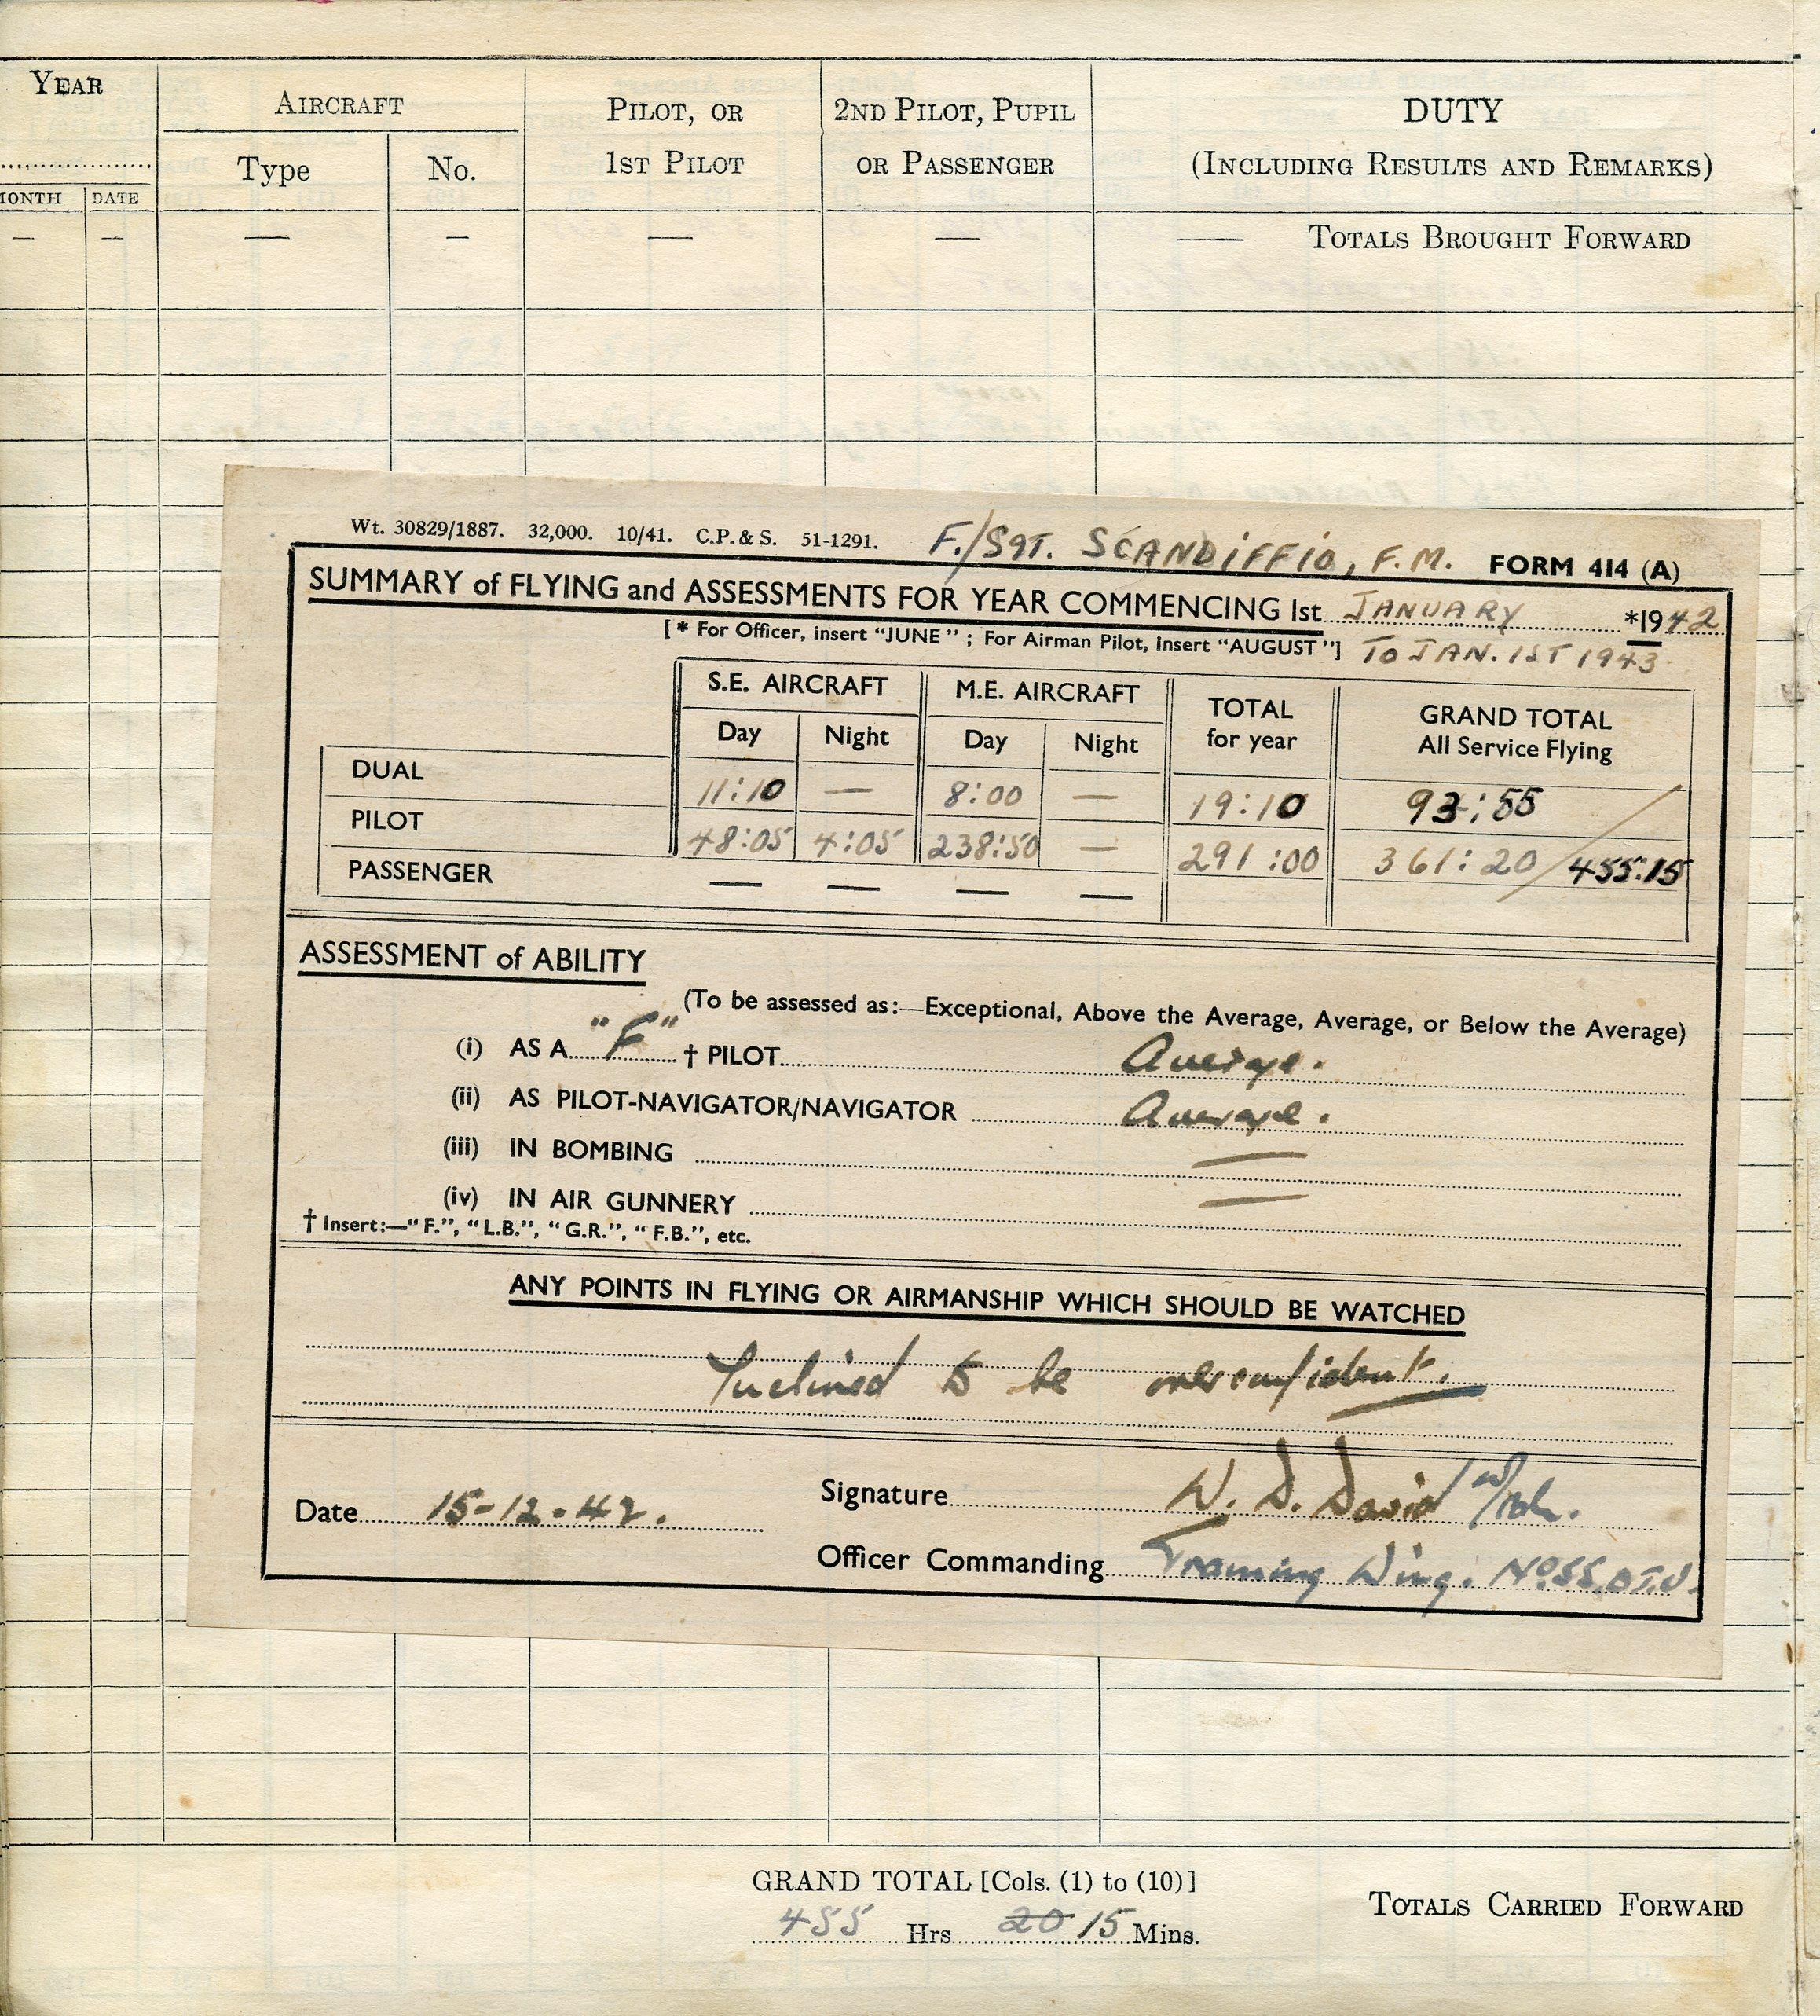 YEAR
AIRCRAFT
PILOT, OR
1ST PILOT
2ND PILOT, PUPIL
OR PASSENGER
DUTY
(INCLUDING RESULTS AND REMARKS)
Type No.
MONTH DATE
— — — — — — — TOTALS BROUGHT FORWARD
Wt. 30829/1887. 32,000. 10/41. C.P. & S. 51-1291. F./SGT. SCANDIFFIO, F.M. FORM 414 (A)
SUMMARY of FLYING and ASSESSMENTS FOR YEAR COMMENCING 1st JANUARY *1942
[* For Officer, insert "JUNE"; For Airman Pilot, insert "AUGUST"] TO JAN. 1ST 1943
S.E. AIRCRAFT M.E. AIRCRAFT TOTAL for year GRAND TOTAL All Service Flying
Day Night Day Night
DUAL 11:10 — 8:00 — 19:10 93:55
PILOT 48:05 4:05 238:50 — 291:00 361:20 / 455:15
PASSENGER — — — —
ASSESSMENT of ABILITY
(To be assessed as:—Exceptional, Above the Average, Average, or Below the Average)
(i) AS A "F" † PILOT Average.
(ii) AS PILOT-NAVIGATOR/NAVIGATOR Average.
(iii) IN BOMBING —
(iv) IN AIR GUNNERY —
† Insert:—"F.", "L.B.", "G.R.", "F.B.", etc.
ANY POINTS IN FLYING OR AIRMANSHIP WHICH SHOULD BE WATCHED
Inclined to be overconfident.
Date 15-12-42. Signature W. D. David W/Cdr.
Officer Commanding Training Wing. No 55. O.T.U.
GRAND TOTAL [Cols. (1) to (10)]
455 Hrs 20 15 Mins.
TOTALS CARRIED FORWARD